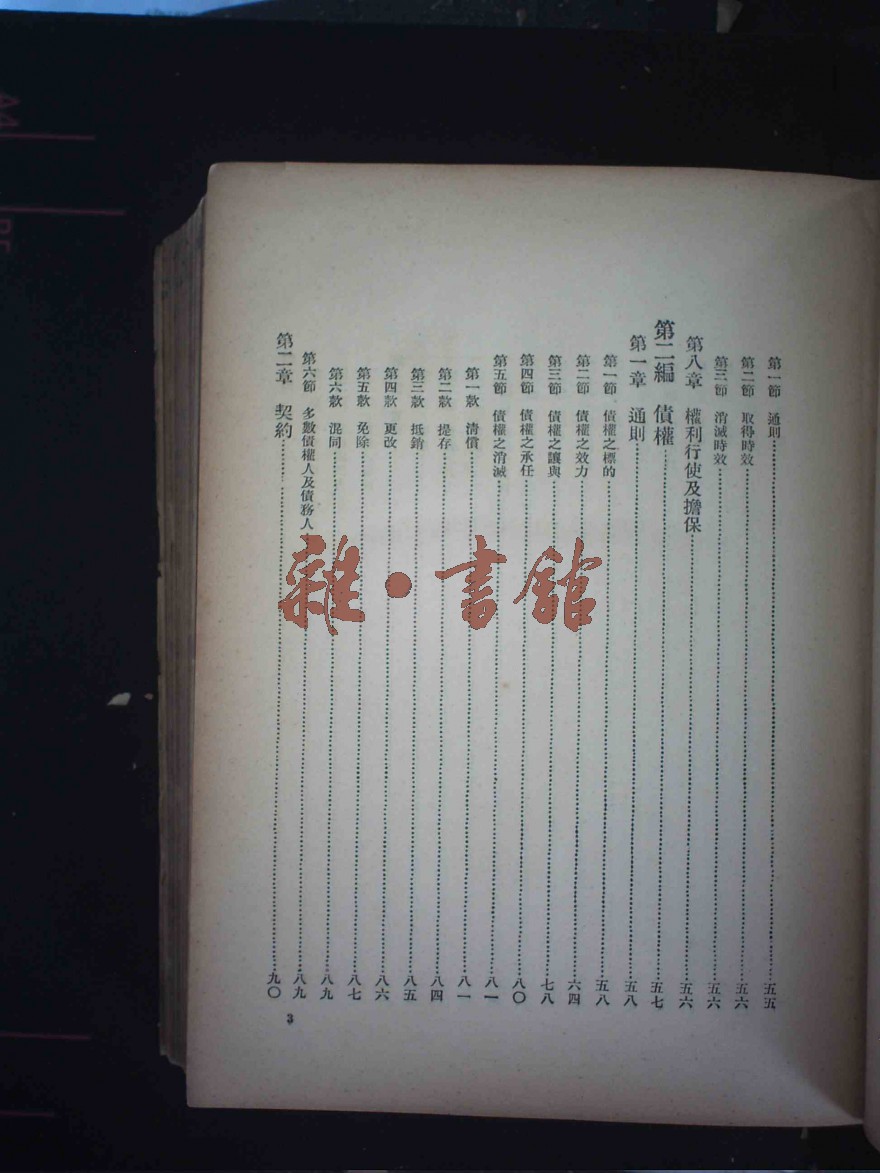 第一節 通則……五五
第二節 取得時效……五六
第三節 消滅時效……五六
第八章 權利行使及擔保……五六
第二編 債權……五七
第一章 通則……五八
第一節 債權之標的……五八
第二節 債權之效力……六四
第三節 債權之讓與……七八
第四節 債權之承任……八〇
第五節 債權之消滅……八一
第一款 清償……八一
第二款 提存……八四
第三款 抵銷……八五
第四款 更改……八六
第五款 免除……八七
第六款 混同……八九
第六節 多數債權人及債務人……八九
第二章 契約……九〇
3
雜·書館
A4